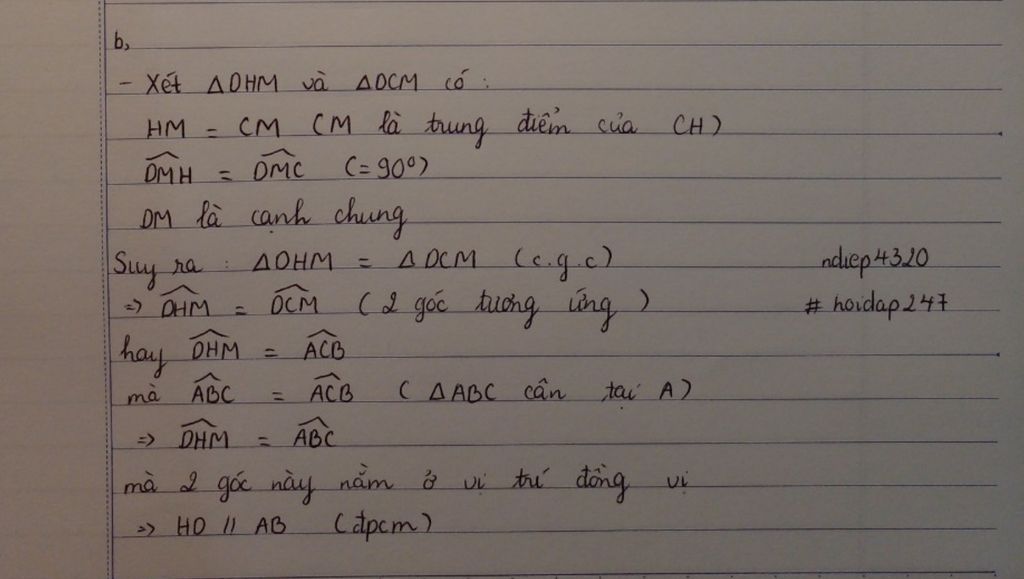 b,
- Xét ΔDHM và ΔDCM có:
HM = CM (M là trung điểm của CH)
\widehat{DMH} = \widehat{DMC} (=90°)
DM là cạnh chung
Suy ra : ΔDHM = ΔDCM (c.g.c) ndiep4320
=> \widehat{DHM} = \widehat{DCM} (2 góc tương ứng) # hoidap247
hay \widehat{DHM} = \widehat{ACB}
mà \widehat{ABC} = \widehat{ACB} (ΔABC cân tại A)
=> \widehat{DHM} = \widehat{ABC}
mà 2 góc này nằm ở vị trí đồng vị
=> HD // AB (đpcm)